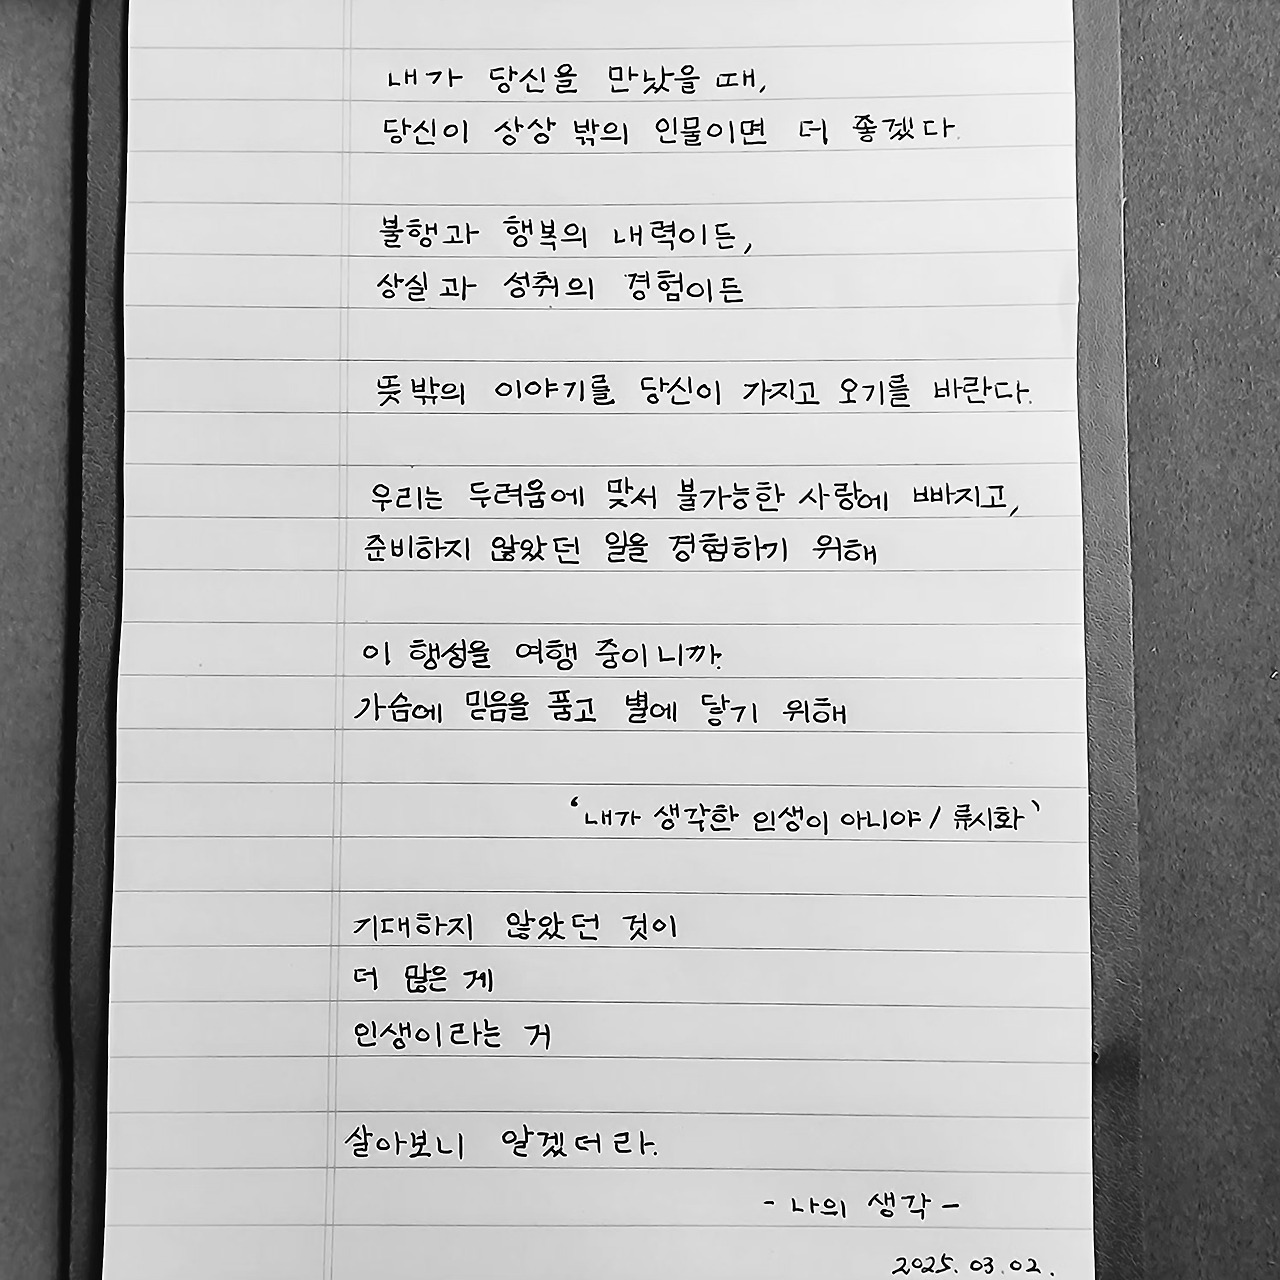 내가 당신을 만났을 때,
당신이 상상 밖의 인물이면 더 좋겠다.
불행과 행복의 내력이든,
상실과 성취의 경험이든
뜻밖의 이야기를 당신이 가지고 오기를 바란다.
우리는 두려움에 맞서 불가능한 사랑에 빠지고,
준비하지 않았던 일을 경험하기 위해
이 행성을 여행 중이니까.
가슴에 믿음을 품고 별에 닿기 위해
'내가 생각한 인생이 아니야 / 류시화'
기대하지 않았던 것이
더 많은 게
인생이라는 거
살아보니 알겠더라.
- 나의 생각 -
2025. 03. 02.